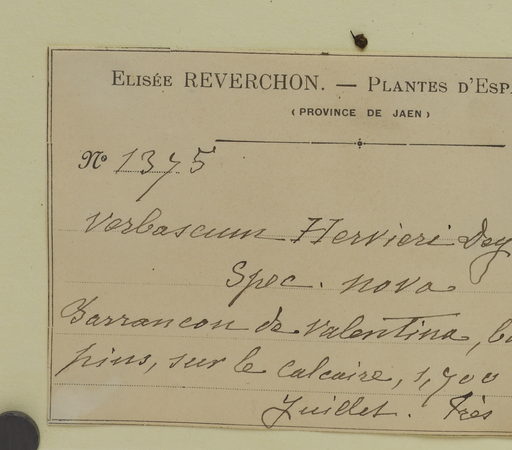 Elisée REVERCHON. — Plantes d'Esp
(PROVINCE DE JAEN)
Nº 1375
Verbascum Hervieri Deg
Spec. nova
Barrancon de Valentina, b
pins, sur le calcaire, 1,700
Juillet. Très